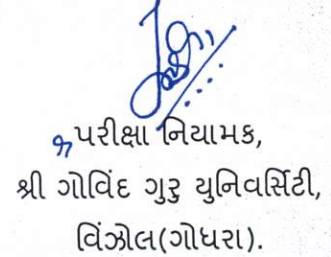 પરીક્ષા નિયામક,
શ્રી ગોવિંદ ગુરુ યુનિવર્સિટી,
વિંઝોલ(ગોધરા).